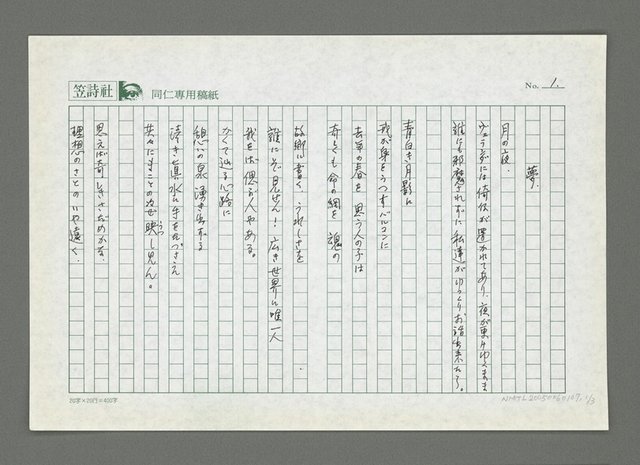 笠詩社
同仁専用稿紙
No. 1.
夢.
月の夜.
ヴェランダには倚仗が置かれてあり、夜が更けゆくまま
誰にも邪魔されずに私達がゆっくりお話出来たら。
青白き月影に
我が身をうつすバルコンに
去年の春を思う人の子は
奇しくも命の綱を 魂の
故郷に書く、うれしさを
誰にぞ見せん！広き世界に唯一人
我をば偲ぶ人やある。
かくて辿る心路に
憩いの泉 湧き出る
清き真水に手をたづさえ
共々にまことの姿 映し見ん。
うつ
思えば奇しきさだめかな、
理想のさとのいや遠く.
20字×20行=400字
NMTL20050060109, 1/3